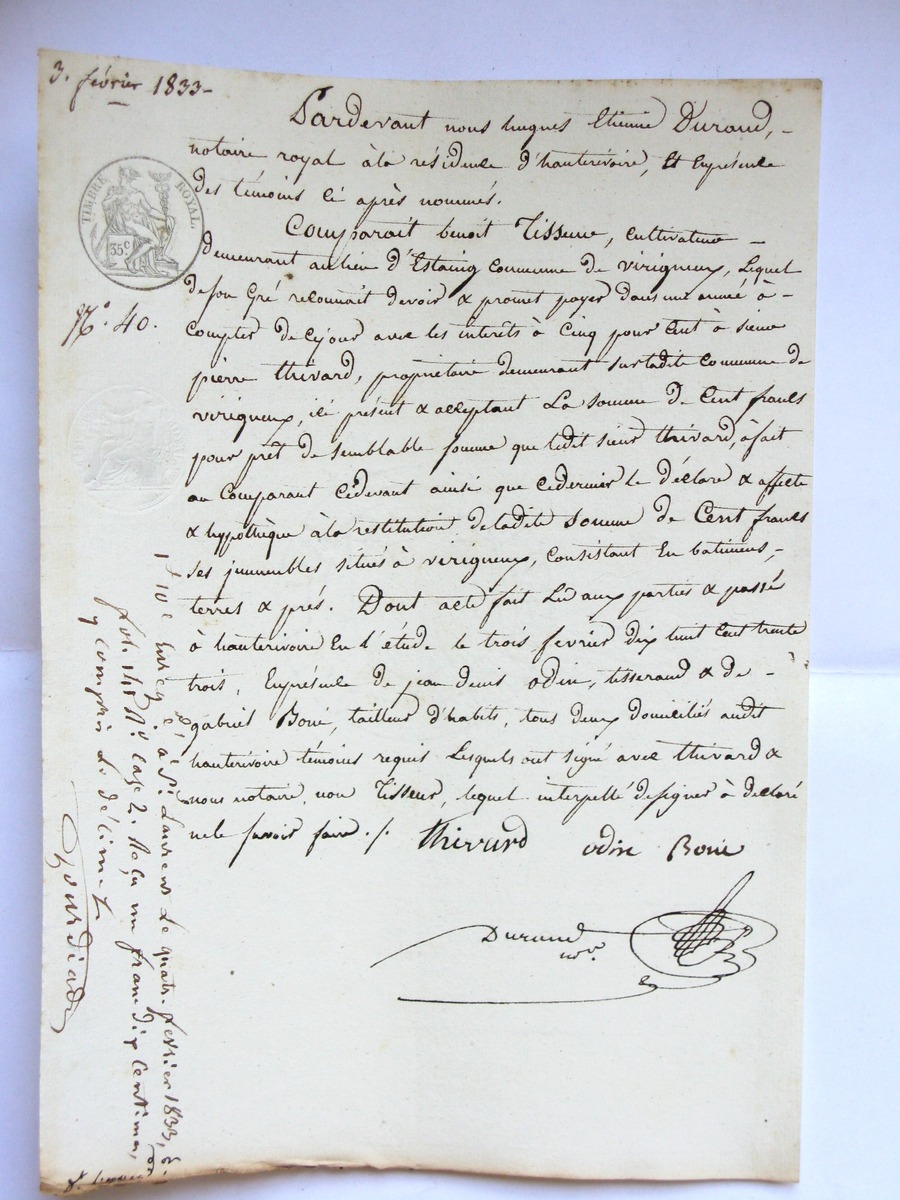 3. février 1833-
Pardevant nous hugues Etienne Durand,-
notaire royal à la résidence d'hauterivoire, Et Enprésence
des témoins Ci après nommés.
TIMBRE ROYAL.
35 c
Comparait benoit Tisseur, Cultivateur -
demeurant au lieu d'Estaing Commune de virigneux, Lequel
de son Gré reconnait devoir & promet payer dans une année à-
compter de Cejour avec les interêts à Cinq pour Cent à sieur
N.o 40.
pierre thivard, propriétaire demeurant sur ladite Commune de
virigneux, ici présent & acceptant La somme de Cent francs
pour prêt de semblable somme que ledit sieur thivard, à fait
au Comparant Cidevant ainsi que cedernier le déclare & affecte
& hypothèque à la restitution de ladite somme de Cent francs
ses immeubles situés à virigneux, Consistant En batimens,-
terres & prés. Dont acte fait Lu aux parties & passé
à hauterivoire En l'étude le trois fevrier dix huit Cent trente
trois, Enprésence de jean denis odin, tisserand & de-
gabriel Boné, tailleur d'habits, tous deux domiciliés audit
hauterivoire témoins requis Lesquels ont signé avec thivard &
nous notaire, non Tisseur, lequel interpellé designer à déclaré
ne le savoir faire ./.
thivard odin Boné
Durand
nre.
Enreg.é à St. Laurent Le quatre fevrier 1833,
fol. 141 R.o Case 2. Reçu un franc dix Centimes,
y compris Le décime